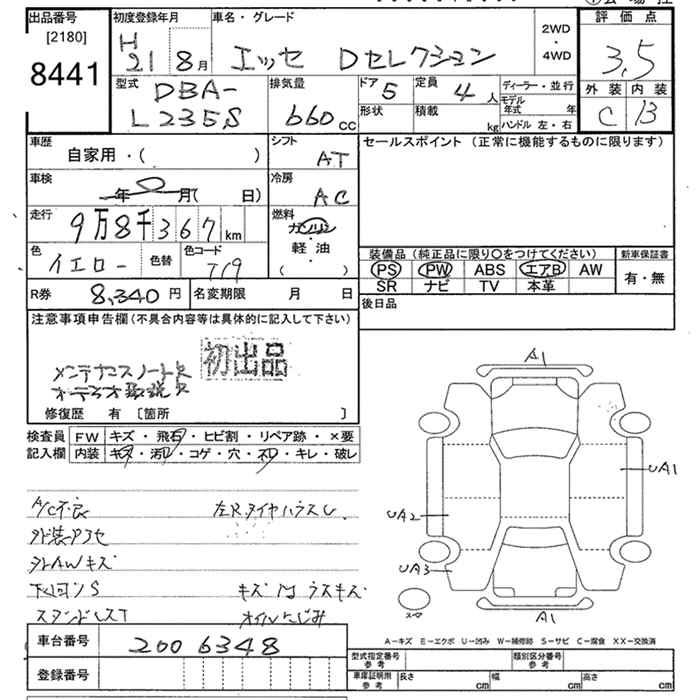 出品番号 初度登録年月 車名・グレード 2WD・4WD 評価点
[2180]
8441 H21 8月 エッセ Dセレクション 3.5
外装 内装
C B
型式 DBA-L235S 排気量 660cc ドア 5 定員 4人 ディーラー・並行
形状 積載 kg モデル年式 年
ハンドル 左・右
車歴 自家用・( ) シフト AT セールスポイント (正常に機能するものに限ります)
車検 年 月( 日) 冷房 AC
走行 9万8千367km 燃料 ガソリン・軽油( )
色 イエロー 色替 色コード T19
装備品 (純正品に限り○をつけてください) 新車保証書
PS PW ABS エアB AW 有・無
SR ナビ TV 本革
R券 8,340円 名変期限 月 日 後日品
注意事項申告欄 (不具合内容等は具体的に記入して下さい)
初出品
メンテナスノート欠
修復歴 有 [箇所 ]
検査員記入欄 FW キズ・飛石・ヒビ割・リペア跡・×要
内装 キズ・汚れ・コゲ・穴・スレ・キレ・破レ
A/C不良 左Rタイヤハウスし
外装アクセ
外AWキズ
下廻りS キズ 小ウスキズ
オイルにじみ
A1
UA1
UA2
UA3
A1
A−キズ E−エクボ U−凹み W−補修跡 S−サビ C−腐食 XX−交換済
車台番号 2006348
登録番号
型式指定番号 参考 類別区分番号 参考
車庫証明用 参考 長さ cm 幅 cm 高さ cm